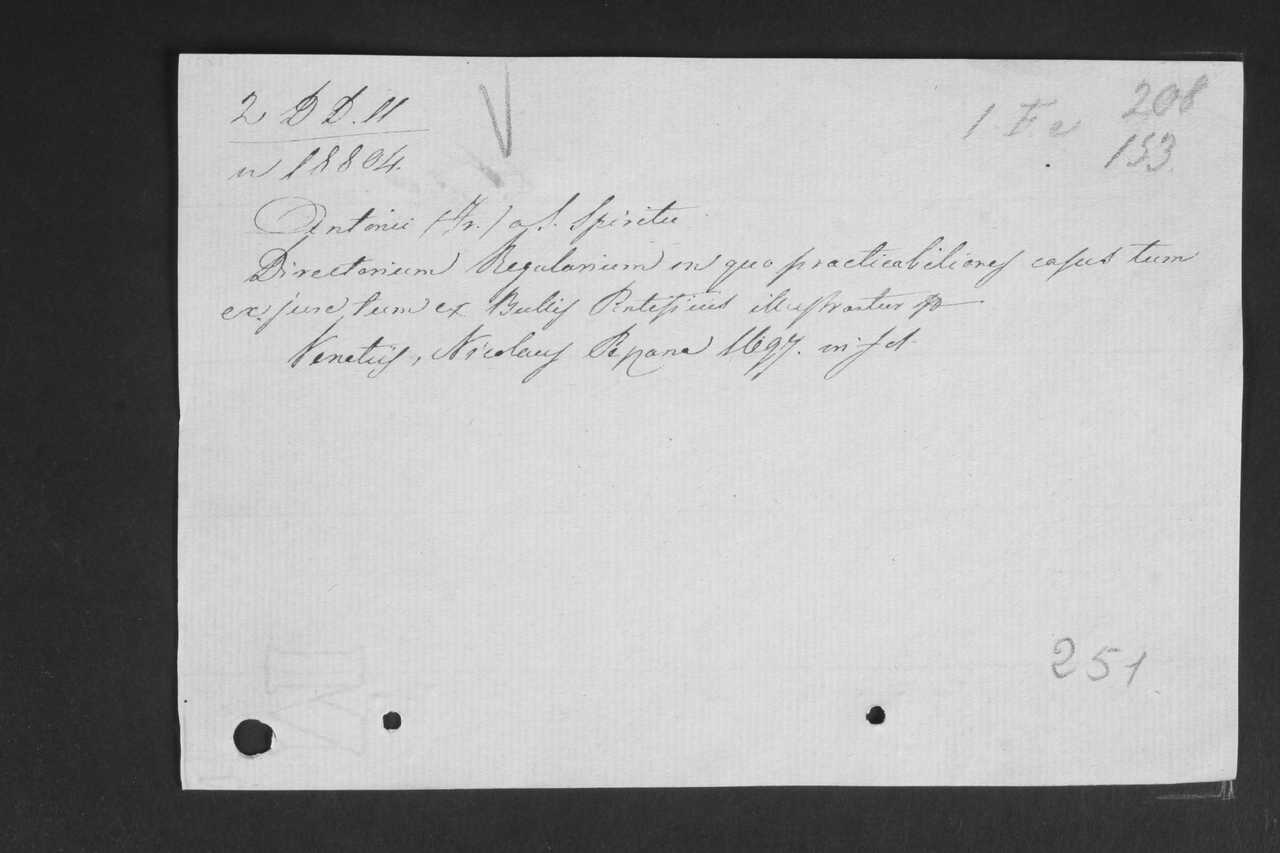 2 D D. 11
n 18804.
1 F e 208
153.
Antonii (Fr.) a S. Spiritu
Directorium Regularium in quo practicabiliores casus tum
ex jure tum ex Bullis illustrantur
Venetiis, Nicolaus Pezana 1697. in fol.
251